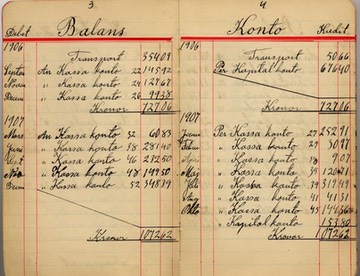 3.
Debet Balans
1906
Transport 55409
Septem An Kassa konto 22 14592
Novem " Kassa konto 24 12767
Decem " Kassa konto 26 9938
Kronor 72706
1907
Mars An Kassa konto 32 6083
Juni " Kassa konto 38 28140
" Kassa konto 46 27250
Nov " Kassa konto 48 14950
Decem " Kassa konto 52 34839
Kronor 107262
4
Konto Kredit
1906
Transport 5066
Per Kapital konto 67640
Kronor 72706
1907
Per Kassa konto 27 25291
" Kassa konto 29 5097
" Kassa konto 907
Maj " Kassa konto 35
Juli " Kassa konto 39 31949
Aug " Kassa konto 41 4131
Okto " Kassa konto 45
Kapital konto 15350
Kronor 107262